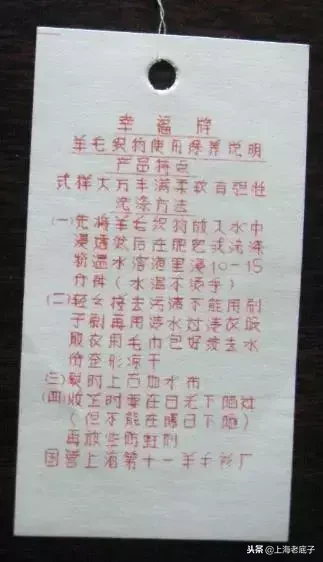 幸福牌
羊毛织物使用保养说明
产品特点
式样大方丰满柔软有弹性
洗涤方法
(一)先将羊毛织物放入水中
浸透然后在肥皂或洗涤
粉温水溶液里浸10-15
分钟(水温不烫手)
(二)轻轻揉去污渍不能用刷
子刷再用清水过清衣服
取衣用毛巾包好挤去水
份整形凉干
(三)熨时上盖加水布
(四)收至时要在日光下晒
(但不能在曝日下晒)
再放些防蛀剂
国营上海第十一羊毛衫厂
头条@上海老底子